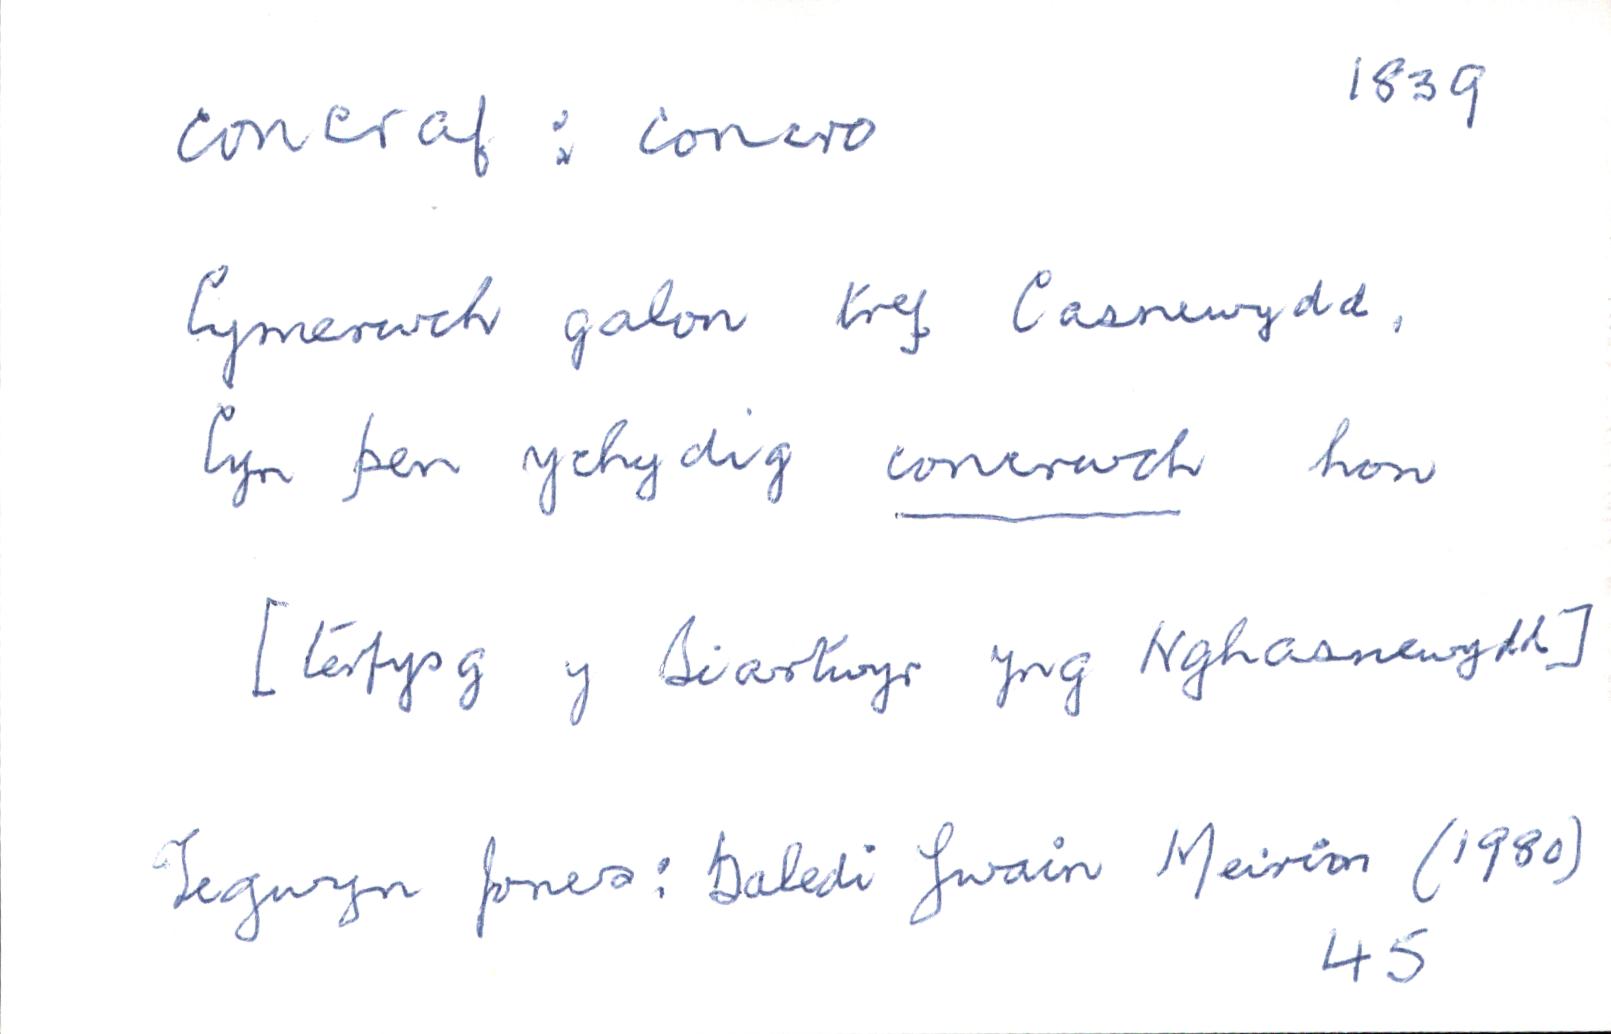 1839
concraf : concro
Cymerwch galon tref Casnewydd,
Cyn pen ychydig concrwch hon
[terfysg y Siartwyr yng Nghasnewydd]
Tegwyn Jones: Baledi Ywain Meirion (1980)
45